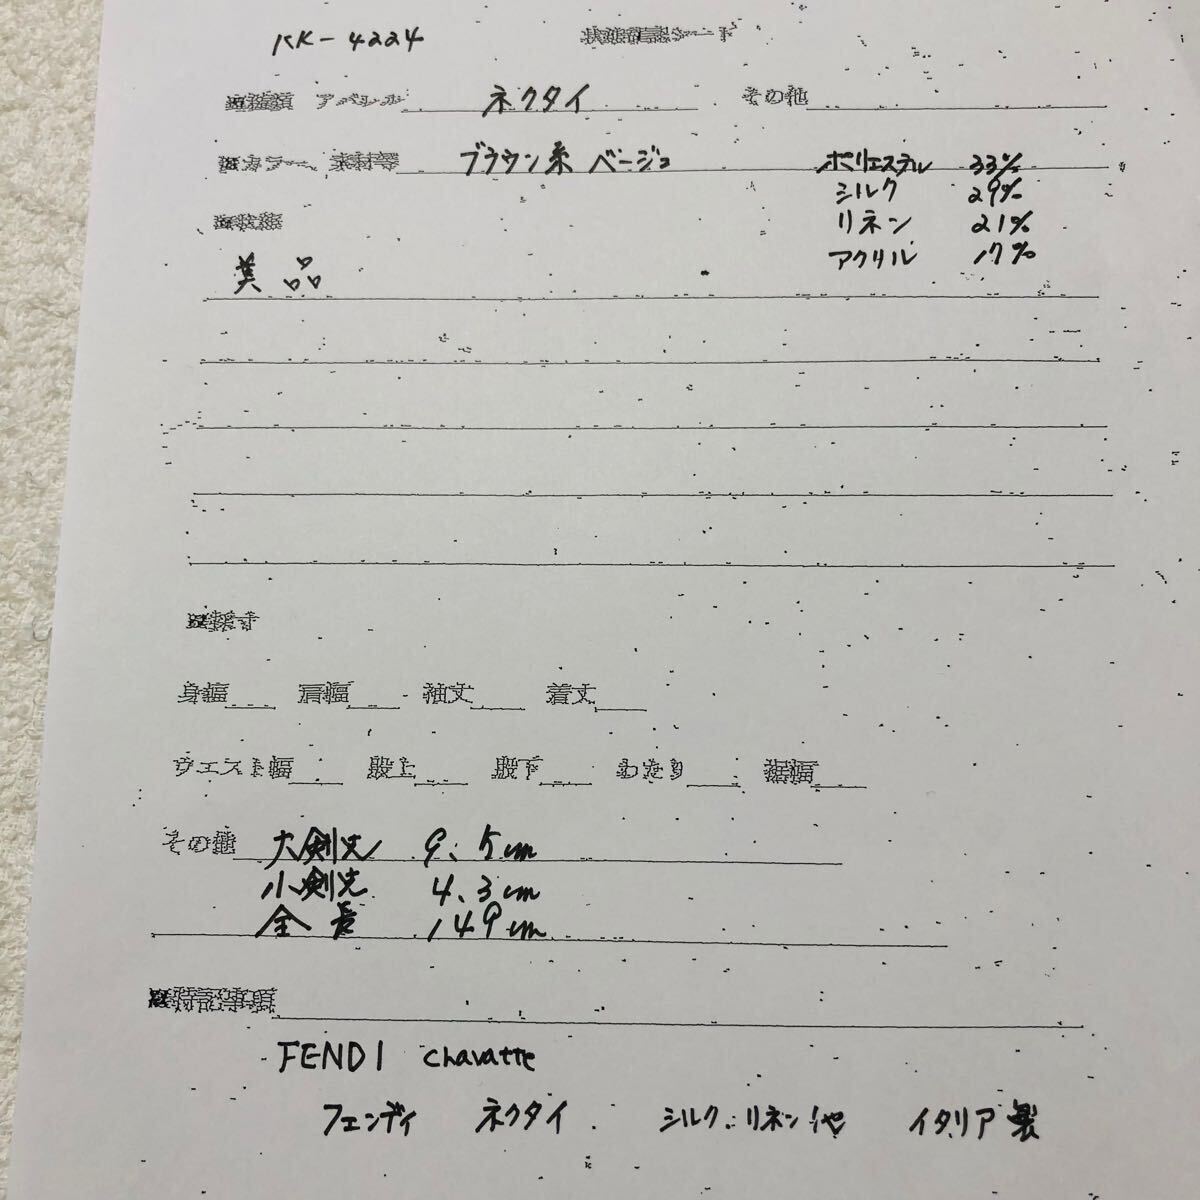 KK-4224 状態確認シート
※種類 アパレル ネクタイ その他
※カラー、素材等 ブラウン系 ベージュ ポリエステル 33%
シルク 29%
リネン 21%
アクリル 17%
※状態
美品
※採寸
身幅 肩幅 袖丈 着丈
ウエスト幅 股上 股下 わたり 裾幅
その他 大剣先 9.5cm
小剣先 4.3cm
全長 149cm
※特記事項
FENDI chavatte
フェンディ ネクタイ シルク.リネン他 イタリア製